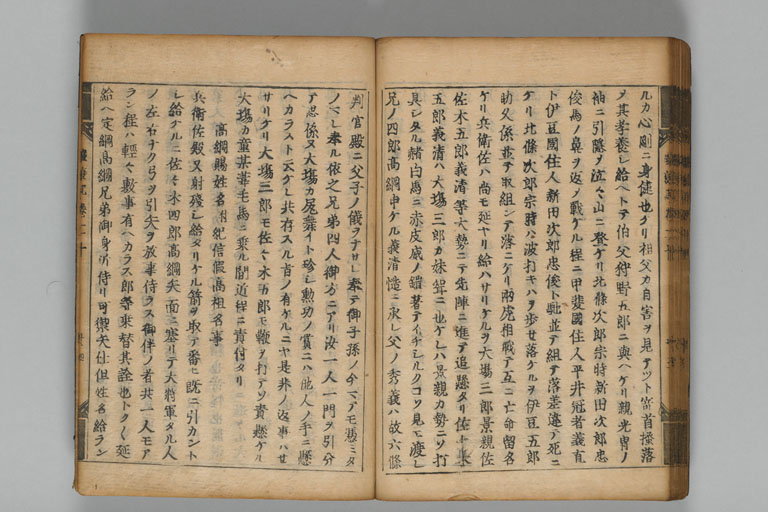 ルカ心剛ニ身健也ケリ祖父カ自害ヲ見テツト寄首掻落
ヲ其孝養シ給ヘトテ伯父狩野五郎ニ與ヘケリ親光冑ノ
袖ニ引隠ヲ泣々山ニ登ケリ北條次郎宗時新田次郎忠
俊馬ノ鼻ヲ返ノ戰ケル程ニ甲斐國住人平井冠者義直
ト伊豆國住人新田次郎忠俊ト馳並テ組テ落差違テ死ニ
ケリ北條次郎宗時ハ波打キハヲ歩セ落ケルヲ伊豆五郎
助久係並テ取組ンテ薄ニケリ兩虎相戰テ互ニ亡命留名
ケリ兵衛佐ハ尚モ延ヤリ給ハサリケルヲ大場三郎景親佐
佐木五郎義清等大勢ニテ先陣ニ進テ追懸タリ佐々木
五郎義清ハ大場三郎カ妹聟ニ也ケレハ景親カ勢ニツ打
具シタル赭白馬ニ赤皮威ノ鎧著テイチシルクコソ見ヘ渡レ
兄ノ四郎高綱申ケル義清慥ニ承レ父ノ秀義ハ故六條
判官殿ニ父子ノ儀ヲナセシ奉テ御子孫ノ今マテモ憑ミタ
ノマレ奉ル依之兄弟四人御方ニアリ汝一人一門ヲ引分
テ忍係ヌ大場カ尻舞イト珍シ勲功ノ賞ニハ他人ノ手ニ懸
ヘカラスト云ケレ共存スル旨ノ有ケルニヤ是非ノ返事ハセ
サリケリ大場三郎モ佐々木五郎モ鞭ヲ打テソ責懸ケル
大場カ童某葦毛馬ニ乗ル間近程ニ責付タリ
高綱賜姓名附紀信假高祖名事
兵衛佐殿又射殘シ給タリケル箭ヲ取テ番ヒ既ニ引カント
シ給ケルニ佐々木四郎高綱矢面ニ塞リテ大將軍タル人
ノ左右ナク弓ヲ引矢ヲ放事侍ラス御伴ノ者共一人モア
ラン程ハ輕々敷事有ヘカラス郎等乗替其詮也トクトク延
給ヘ定綱高綱兄弟御身所侍リ可禦矢仕但姓名給ラン